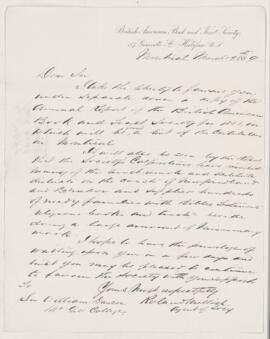 British American Book and Tract Society,
117 Granville St. Halifax N.S
Montreal March 25th
Dear Sir
I take the liberty to forward you
under separate cover a copy of the
Annual Report of the British American
Book and Tract Society for
which will be found list of the Contributors
in Montreal
It will also be seen by the Report
that the Society's Colporteurs have visited
many of the and destitute
districts on the Coast of Newfoundland
and Labrador and supplied hundreds
of needy families with Bibles Testaments
religious books and tracts beside
doing a large amount of Missionary
work.
I hope to have the privilege of
waiting upon you in a few days and
that you may be pleased to continue
to favour the Society with your support
Yours Most respectfully
To
Sir William Dawson
McGill College
Agent of Socy